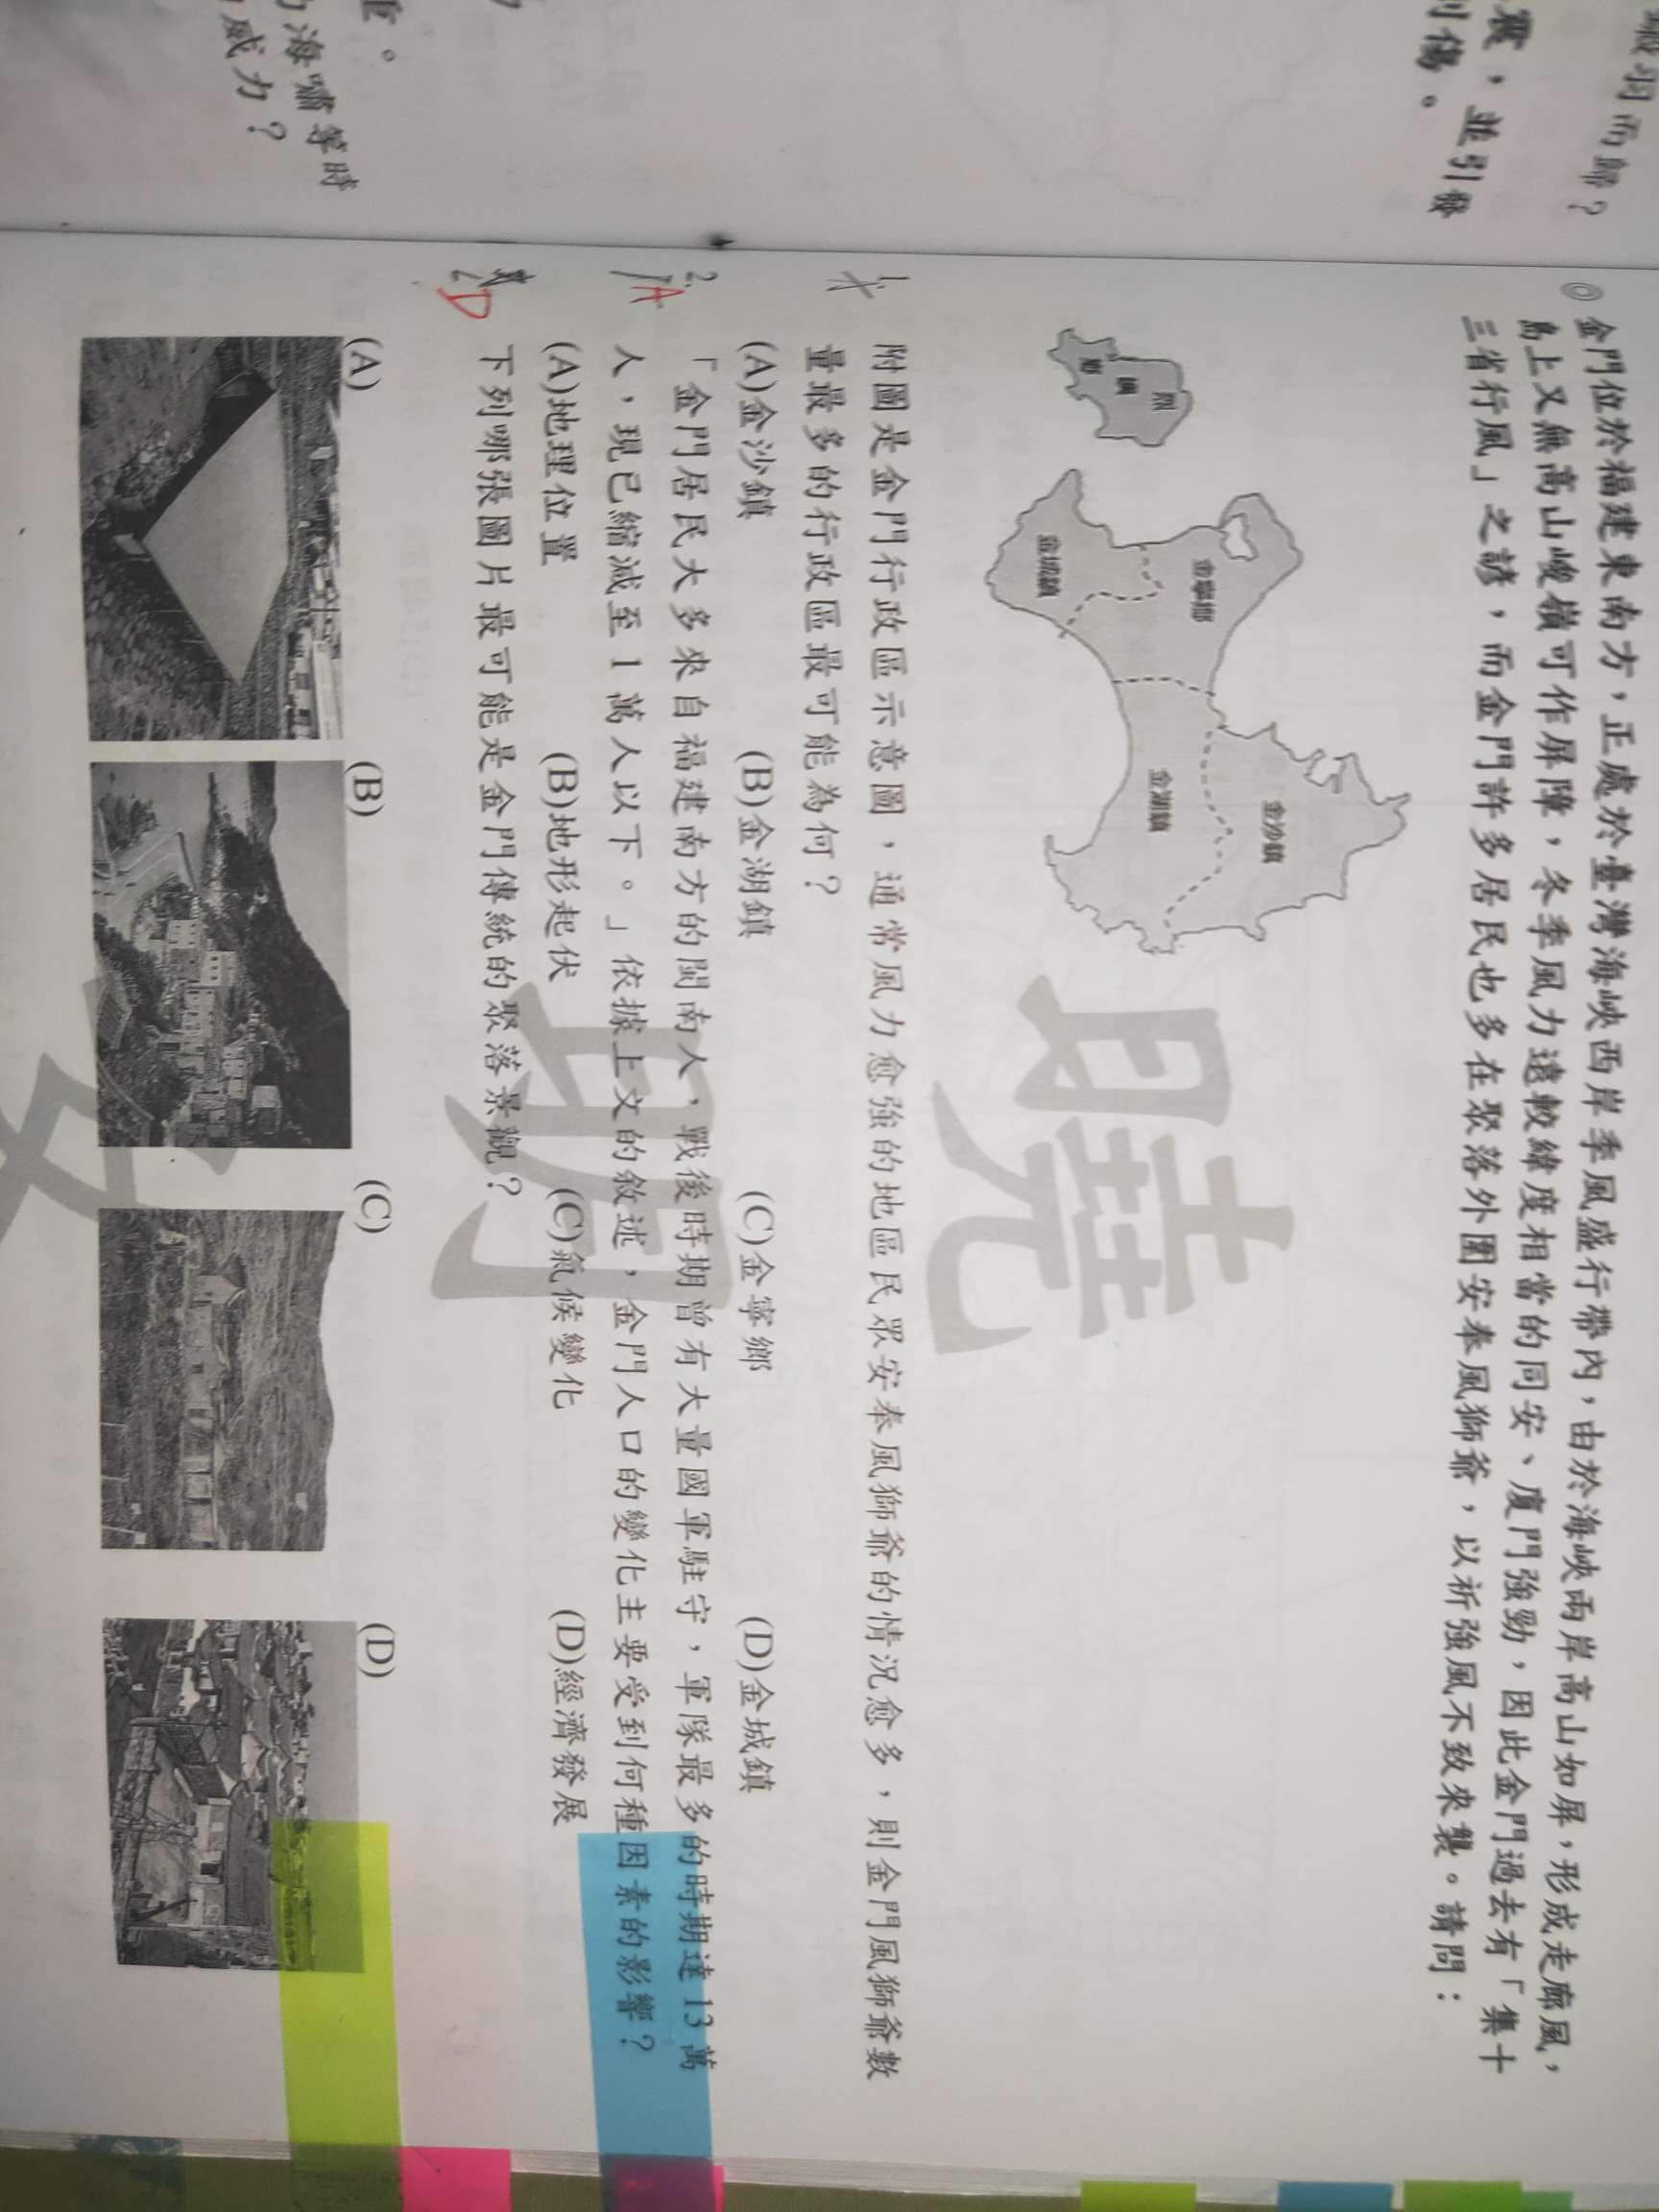 職羽而歸?
震,並引發
傷。
重。
海嘯等時
威力?
◎金門位於福建東南方,正處於臺灣海峽西岸季風盛行帶內,由於海峽兩岸高山如屏,形成走廊風,
島上又無高山峻嶺可作屏障,冬季風力遠較緯度相當的同安、廈門強勁,因此金門過去有「集十
三省行風」之諺,而金門許多居民也多在聚落外圍安奉風獅爺,以祈強風不致來襲。請問:
烈嶼鄉
金寧鄉
金城鎮
金沙鎮
金湖鎮
1. 附圖是金門行政區示意圖,通常風力愈強的地區民眾安奉風獅爺的情況愈多,則金門風獅爺數
量最多的行政區最可能為何?
(A)金沙鎮 (B)金湖鎮 (C)金寧鄉 (D)金城鎮
2. A 「金門居民大多來自福建南方的閩南人,戰後時期曾有大量國軍駐守,軍隊最多的時期達13萬
人,現已縮減至1萬人以下。」依據上文的敘述,金門人口的變化主要受到何種因素的影響?
(A)地理位置 (B)地形起伏 (C)氣候變化 (D)經濟發展
D 下列哪張圖片最可能是金門傳統的聚落景觀?
(A) (B) (C) (D)
曉
明